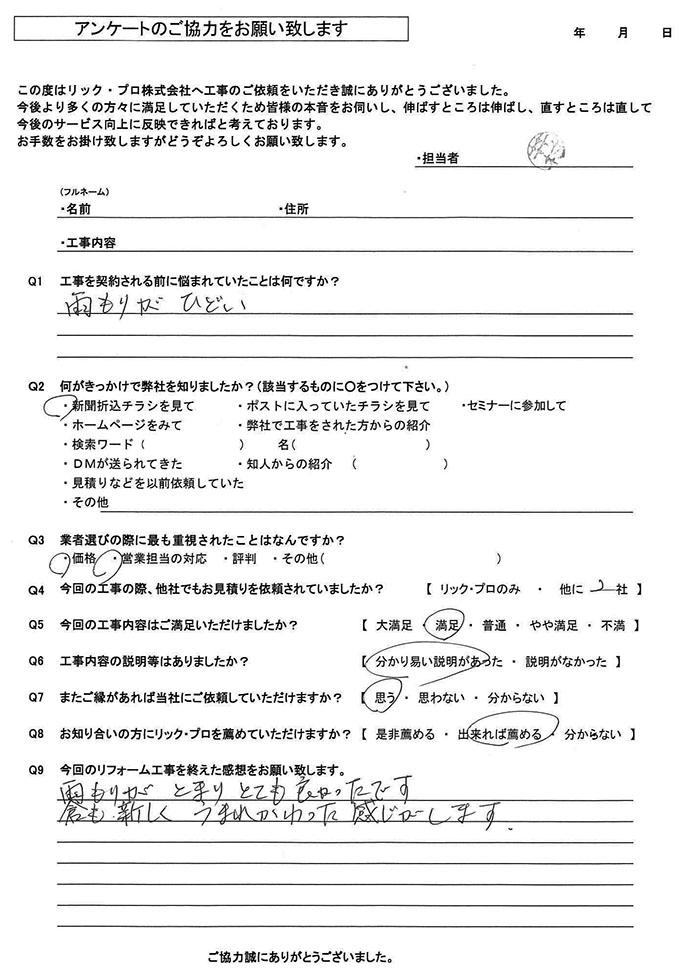 アンケートのご協力をお願い致します
年　月　日
この度はリック・プロ株式会社へ工事のご依頼をいただき誠にありがとうございました。
今後より多くの方々に満足していただくため皆様の本音をお伺いし、伸ばすところは伸ばし、直すところは直して
今後のサービス向上に反映できればと考えております。
お手数をお掛け致しますがどうぞよろしくお願い致します。
・担当者
(フルネーム)
・名前　・住所
・工事内容
Q1　工事を契約される前に悩まれていたことは何ですか？
雨もりが ひどい
Q2　何がきっかけで弊社を知りましたか？(該当するものに〇をつけて下さい。)
・新聞折込チラシを見て　・ポストに入っていたチラシを見て　・セミナーに参加して
・ホームページをみて　・弊社で工事をされた方からの紹介
・検索ワード（　）　名（　）
・DMが送られてきた　・知人からの紹介　（　）
・見積りなどを以前依頼していた
・その他
Q3　業者選びの際に最も重視されたことはなんですか？
・価格　・営業担当の対応　・評判　・その他(　)
Q4　今回の工事の際、他社でもお見積りを依頼されていましたか？　【 リック・プロのみ ・ 他に 2 社 】
Q5　今回の工事内容はご満足いただけましたか？　【 大満足 ・ 満足 ・ 普通 ・ やや満足 ・ 不満 】
Q6　工事内容の説明等はありましたか？　【 分かり易い説明があった ・ 説明がなかった 】
Q7　またご縁があれば当社にご依頼していただけますか？　【 思う ・ 思わない ・ 分からない 】
Q8　お知り合いの方にリック・プロを薦めていただけますか？　【 是非薦める ・ 出来れば薦める ・ 分からない 】
Q9　今回のリフォーム工事を終えた感想をお願い致します。
雨もりが とまり とても良かったです
も 新しく うまれかわった 感じがします.
ご協力誠にありがとうございました。